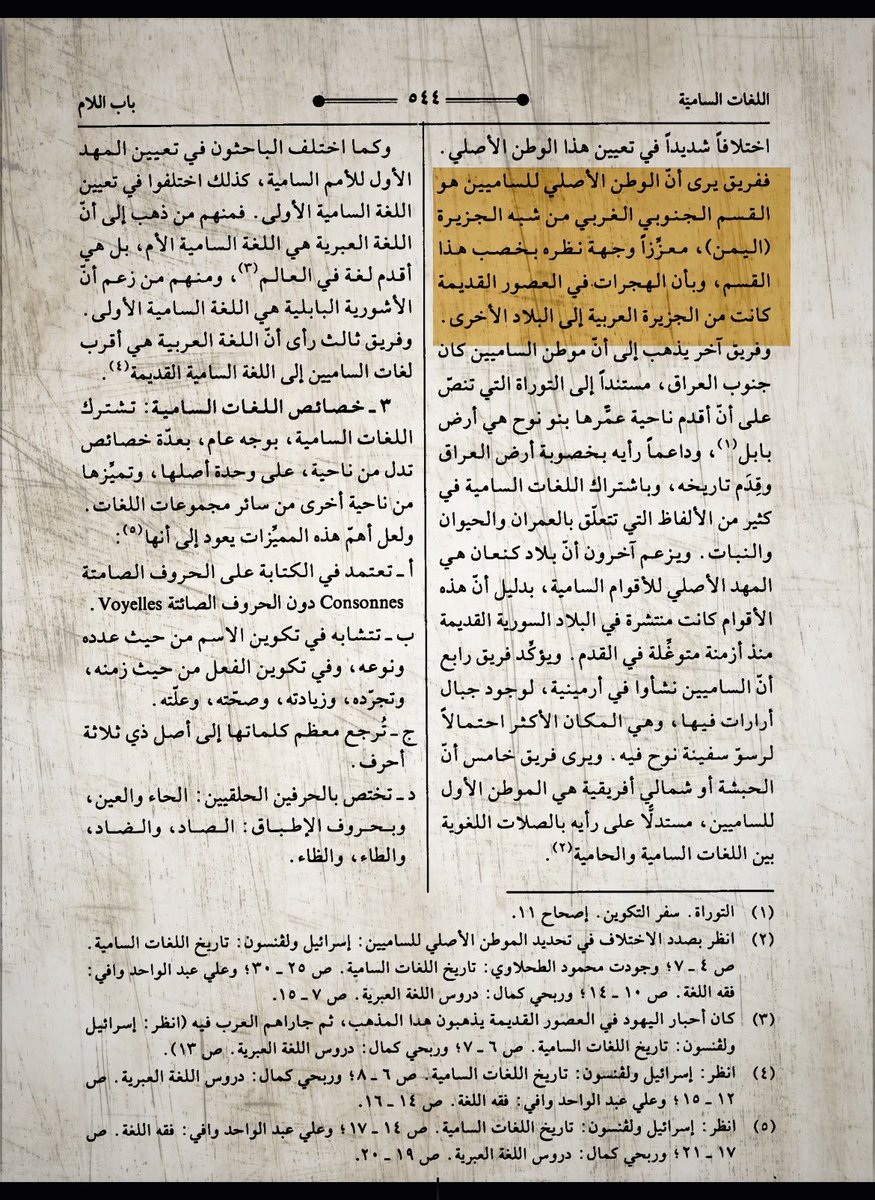 اللغات الساميّة
٥٤٤
باب اللام
اختلافاً شديداً في تعيين هذا الوطن الأصلي.
ففريق يرى أنّ الوطن الأصلي للساميين هو
القسم الجنوبي الغربي من شبه الجزيرة
(اليمن)، معزِّزاً وجهة نظره بخصب هذا
القسم، وبأن الهجرات في العصور القديمة
كانت من الجزيرة العربية إلى البلاد الأخرى.
وفريق آخر يذهب إلى أنّ موطن الساميين كان
جنوب العراق، مستنداً إلى التوراة التي تنصّ
على أنّ أقدم ناحية عمَّرها بنو نوح هي أرض
بابل(١)، وداعماً رأيه بخصوبة أرض العراق
وقِدَم تاريخه، وباشتراك اللغات السامية في
كثير من الألفاظ التي تتعلّق بالعمران والحيوان
والنبات. ويزعم آخرون أنّ بلاد كنعان هي
المهد الأصلي للأقوام السامية، بدليل أنّ هذه
الأقوام كانت منتشرة في البلاد السورية القديمة
منذ أزمنة متوغِّلة في القدم. ويؤكِّد فريق رابع
أنّ الساميين نشأوا في أرمينية، لوجود جبال
أرارات فيها، وهي المكان الأكثر احتمالاً
لرسوّ سفينة نوح فيه. ويرى فريق خامس أنّ
الحبشة أو شمالي أفريقية هي الموطن الأول
للساميين، مستدلًّا على رأيه بالصلات اللغوية
بين اللغات السامية والحامية(٢).
وكما اختلف الباحثون في تعيين المهد
الأول للأمم السامية، كذلك اختلفوا في تعيين
اللغة السامية الأولى. فمنهم من ذهب إلى أنّ
اللغة العبرية هي اللغة السامية الأم، بل هي
أقدم لغة في العالم(٣)، ومنهم من زعم أنّ
الأشورية البابلية هي اللغة السامية الأولى.
وفريق ثالث رأى أنّ اللغة العربية هي أقرب
لغات الساميين إلى اللغة السامية القديمة(٤).
٣ ـ خصائص اللغات السامية: تشترك
اللغات السامية، بوجه عام، بعدّة خصائص
تدل من ناحية، على وحدة أصلها، وتميِّزها
من ناحية أخرى من سائر مجموعات اللغات.
ولعل أهمّ هذه المميِّزات يعود إلى أنها(٥):
أ ـ تعتمد في الكتابة على الحروف الصامتة
Consonnes دون الحروف الصائتة Voyelles.
ب ـ تتشابه في تكوين الاسم من حيث عدده
ونوعه، وفي تكوين الفعل من حيث زمنه،
وتجرّده، وزيادته، وصحّته، وعلّته.
ج ـ تُرجع معظم كلماتها إلى أصل ذي ثلاثة
أحرف.
د ـ تختص بالحرفين الحلقيين: الحاء والعين،
وبحروف الإطباق: الصاد، والضاد،
والطاء، والظاء.
(١) التوراة. سفر التكوين. إصحاح ١١.
(٢) انظر بصدد الاختلاف في تحديد الموطن الأصلي للساميين: إسرائيل ولڤنسون: تاريخ اللغات السامية.
ص ٤ ـ ٧؛ وجودت محمود الطحلاوي: تاريخ اللغات السامية. ص ٢٥ ـ ٣٠؛ وعلي عبد الواحد وافي:
فقه اللغة. ص ١٠ ـ ١٤؛ وربحي كمال: دروس اللغة العبرية. ص ٧ ـ ١٥.
(٣) كان أحبار اليهود في العصور القديمة يذهبون هذا المذهب، ثم جاراهم العرب فيه (انظر: إسرائيل
ولڤنسون: تاريخ اللغات السامية. ص ٦ ـ ٧؛ وربحي كمال: دروس اللغة العبرية. ص ١٣).
(٤) انظر: إسرائيل ولڤنسون: تاريخ اللغات السامية. ص ٦ ـ ٨؛ وربحي كمال: دروس اللغة العبرية. ص
١٢ ـ ١٥؛ وعلي عبد الواحد وافي: فقه اللغة. ص ١٤ ـ ١٦.
(٥) انظر: إسرائيل ولڤنسون: تاريخ اللغات السامية. ص ١٤ ـ ١٧؛ وعلي عبد الواحد وافي: فقه اللغة. ص
١٧ ـ ٢١؛ وربحي كمال: دروس اللغة العبرية. ص ١٩ ـ ٢٠.